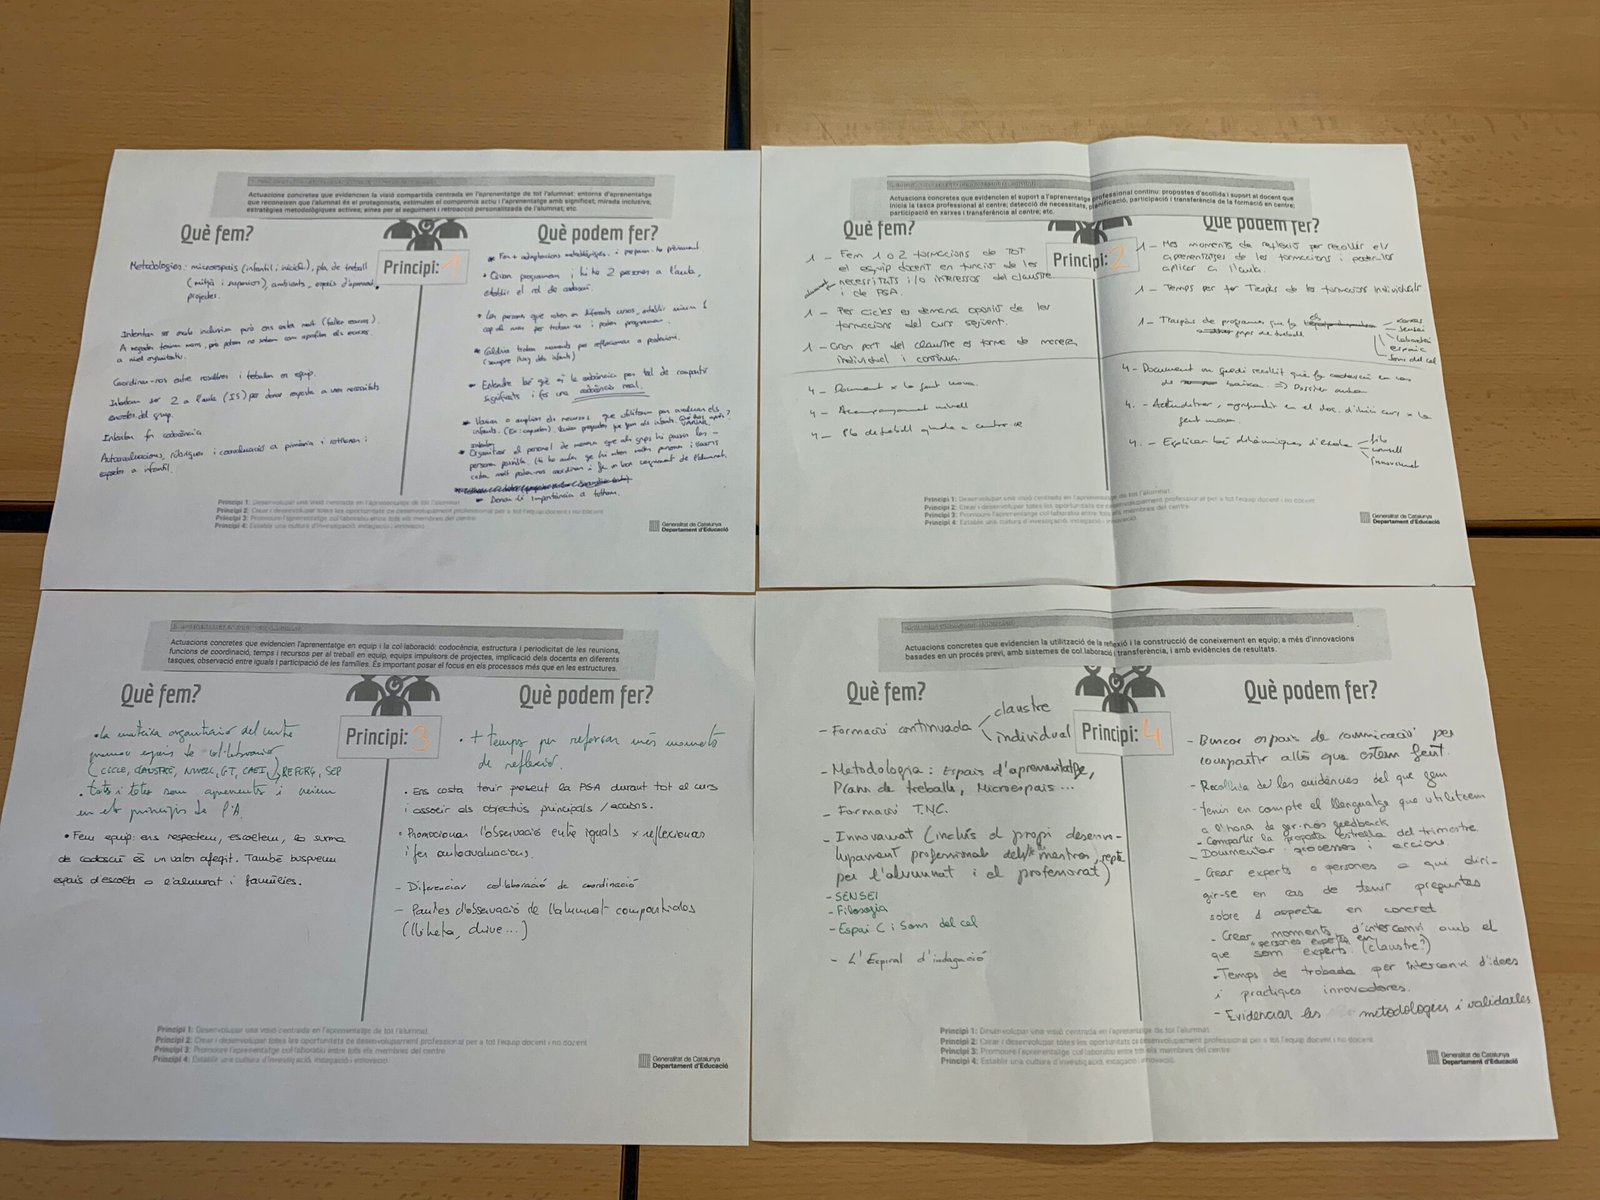 Actuacions concretes que evidencien la visió compartida centrada en l'aprenentatge de tot l'alumnat: entorns d'aprenentatge
que reconeixen que l'alumnat és el protagonista, estimulen el compromís actiu i l'aprenentatge amb significat; mirada inclusiva;
estratègies metodològiques actives; eines per al seguiment i retroacció personalitzada de l'alumnat; etc.
Què fem?
Principi: 1
Què podem fer?
Metodologies: microespais (infantil i inicial), pla de treball
(mitjà i superior), ambients, espais d'aprenent.
projectes.
Intentem ser escola inclusiva però ens costa molt (falten recursos).
A vegades tenim mans, però potser no sabem com aprofitar els recursos
a nivell organitzatiu.
Coordinar-nos entre nosaltres i treballar en equip.
Intentem ser 2 a l'aula (IS) per donar resposta a les necessitats
educatives del grup.
Intentem fer codocència
Autoavaluacions, rúbriques i coavaluació a primària i rotllanes i
espades a infantil.
* Fer + adaptacions metodològiques i preparar-ho prèviament
* Quan programem i hi ha 2 persones a l'aula,
establir el rol de cadascú.
* Les persones que roten en diferents cursos, establir mínim 1
cop al mes per trobar-se i poder programar.
* Caldria trobar moments per reflexionar a posteriori.
(sempre lluny dels infants)
* Entendre bé què és la codocència per tal de compartir
significats i fer una codocència real.
* Variar o ampliar els recursos que utilitzem per avaluar els
infants.
* Organitzar el personal de manera que als grups hi passin les -
persones possible.
* Donar-li importància a tothom.
Principi 1: Desenvolupar una visió centrada en l'aprenentatge de tot l'alumnat
Principi 2: Crear i desenvolupar totes les oportunitats de desenvolupament professional per a tot l'equip docent i no docent
Principi 3: Promoure l'aprenentatge col·laboratiu entre tots els membres del centre
Principi 4: Establir una cultura d'investigació, indagació i innovació
Generalitat de Catalunya
Departament d'Educació
Actuacions concretes que evidencien el suport a l'aprenentatge professional continu: propostes d'acollida i suport al docent que
inicia la tasca professional al centre; detecció de necessitats, planificació, participació i transferència de la formació en centre;
participació en xarxes i transferència al centre; etc.
Què fem?
Principi: 2
Què podem fer?
1 - Fem 1 o 2 formacions de TOT
el equip docent en funció de les
necessitats i/o interessos del claustre
i de PGA
1 - Per cicles es demana opinió de les
formacions del curs següent.
1 - Gran part del claustre es forma de manera
individual i contínua.
4 - Document x la gent nova.
4 - Acompanyament nivell
4 - Pla de treball ajuda a centrar-se
1 - Més moments de reflexió per recollir els
aprenentatges de les formacions i poder-los
aplicar a l'aula.
1 - Temps per fer Traspàs de les formacions individuals
1 - Traspàs de programes que fa
grups de treball
xarxes
sensei
laboratori
espai c
Som del cel
4 - Document on quedi recollit què fa cadascú en cas
de baixa. => Dossier
4. - Actualitzar i aprofundir en el doc. d'inici curs x la
gent nova.
4. - Explicar bé dinàmiques d'escola
filo
unsell
innovamat
Principi 1: Desenvolupar una visió centrada en l'aprenentatge de tot l'alumnat
Principi 2: Crear i desenvolupar totes les oportunitats de desenvolupament professional per a tot l'equip docent i no docent
Principi 3: Promoure l'aprenentatge col·laboratiu entre tots els membres del centre
Principi 4: Establir una cultura d'investigació, indagació i innovació
Generalitat de Catalunya
Departament d'Educació
Actuacions concretes que evidencien l'aprenentatge en equip i la col·laboració: codocència, estructura i periodicitat de les reunions,
funcions de coordinació, temps i recursos per al treball en equip, equips impulsors de projectes, implicació dels docents en diferents
tasques, observació entre iguals i participació de les famílies. És important posar el focus en els processos més que en les estructures.
Què fem?
Principi: 3
Què podem fer?
• La mateixa organització del centre
promou espais de col·laboració
(CICLE, CLAUSTRE, NIVELL, GT, CAEI), REFORÇ, SEP
• Tots i totes som aprenents i creiem
en els principis de l'A.
• Fem equip: ens respectem, escoltem, la suma
de cadascú és un valor afegit. També busquem
espais d'escolta a l'alumnat i famílies.
• + temps per reforçar més moments
de reflexió.
• Ens costa tenir present la PGA durant tot el curs
i associar els objectius principals / accions.
• Promocionar l'observació entre iguals x reflexionar
i fer autoavaluacions
- Diferenciar col·laboració de coordinació
- Pautes d'observació de l'alumnat compartides
(llibreta, drive...)
Principi 1: Desenvolupar una visió centrada en l'aprenentatge de tot l'alumnat
Principi 2: Crear i desenvolupar totes les oportunitats de desenvolupament professional per a tot l'equip docent i no docent
Principi 3: Promoure l'aprenentatge col·laboratiu entre tots els membres del centre
Principi 4: Establir una cultura d'investigació, indagació i innovació
Generalitat de Catalunya
Departament d'Educació
Actuacions concretes que evidencien la utilització de la reflexió i la construcció de coneixement en equip; a més d'innovacions
basades en un procés previ, amb sistemes de col·laboració i transferència, i amb evidències de resultats.
Què fem?
Principi: 4
Què podem fer?
- Formació continuada
claustre
individual
- Metodologia: Espais d'aprenentatge,
Plans de treballs, Microespais...
- Formació T.N.C.
- Innovamat (inclús el propi desenvo-
lupament professional dels mestres, repte
per l'alumnat i el professorat)
- SENSEI
- Filosofia
- Espai C i Som del cel
- L'Espiral d'indagació
- Buscar espais de comunicació per
compartir allò que estem fent.
- Recollida de les evidències del que fem
- Tenir en compte el llenguatge que utilitzem
a l'hora de fer-nos feedback
- Compartir la proposta estrella del trimestre.
- Documentar processos i accions
- Crear experts o persones a qui diri-
gir-se en cas de tenir preguntes
sobre d'aspecte en concret
- Crear moments d'intercanvi amb el
"persones expertes en
que som experts. (claustre?)
- Temps de trobada per intercanvi d'idees
i pràctiques innovadores.
- Evidenciar les metodologies i validarles
Principi 1: Desenvolupar una visió centrada en l'aprenentatge de tot l'alumnat
Principi 2: Crear i desenvolupar totes les oportunitats de desenvolupament professional per a tot l'equip docent i no docent
Principi 3: Promoure l'aprenentatge col·laboratiu entre tots els membres del centre
Principi 4: Establir una cultura d'investigació, indagació i innovació
Generalitat de Catalunya
Departament d'Educació